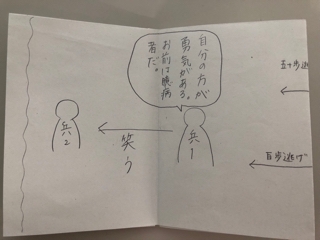 五十歩逃
百歩逃げ
自分の方が
勇気がある。
お前は臆病
者だ。
兵1
笑う
兵2